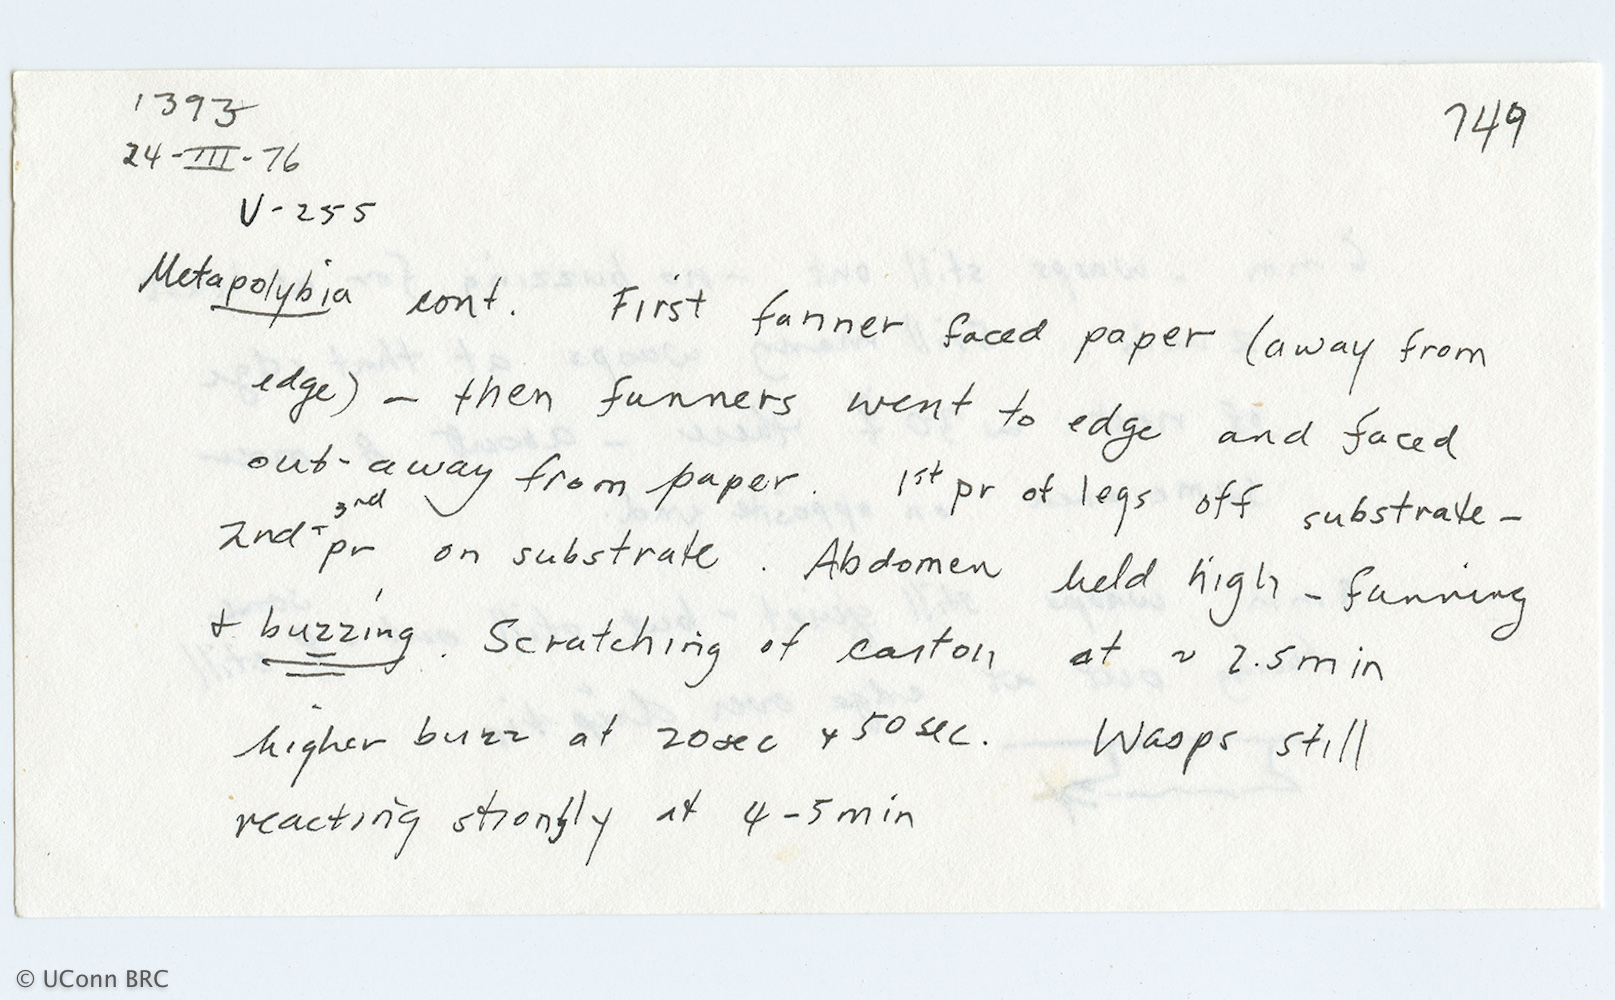 1393
749
24-III-76
V-255
Metapolybia cont. First fanner faced paper (away from
edge) – then fanners went to edge and faced
out-away from paper. 1st pr of legs off substrate –
2nd + 3rd pr on substrate. Abdomen held high – fanning
+ buzzing. Scratching of carton at ~ 2.5min
higher buzz at 20sec + 50sec. Wasps still
reacting strongly at 4-5min
© UConn BRC